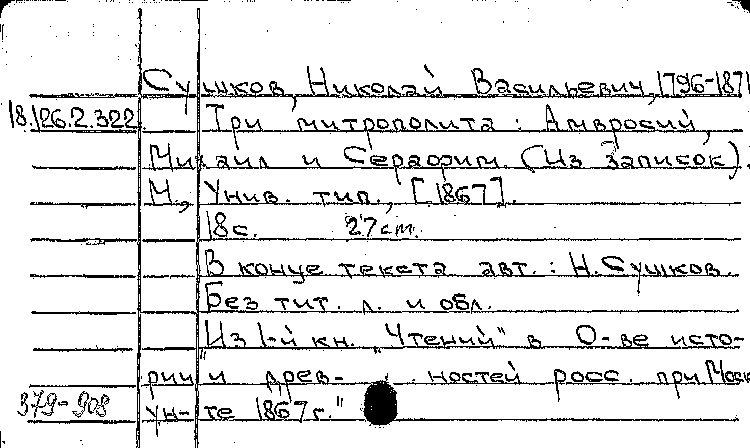 Сушков, Николай Васильевич, 1796-1871
18.126.2.322 Три митрополита: Амвросий,
Михаил и Серафим. (Из записок).
М., Унив. тип., [1867].
18с. 27см.
В конце текста авт.: Н. Сушков.
Без тит. л. и обл.
Из 1-й кн. "Чтений" в О-ве исто-
рии и древ- ностей росс. при Моск
379-908 ун-те 1867г."